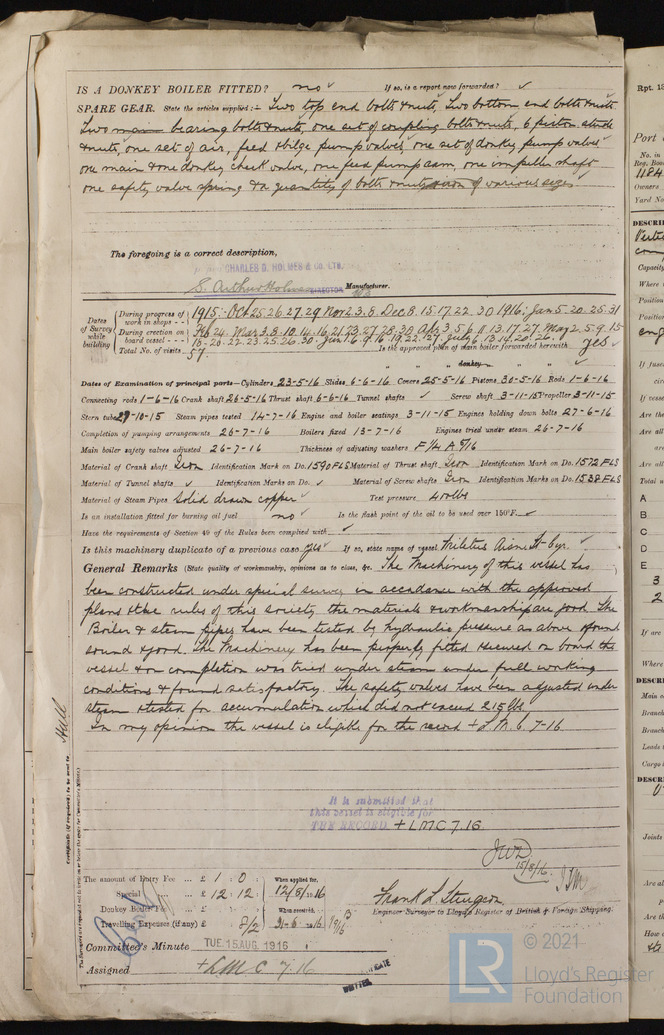 IS A DONKEY BOILER FITTED? no If so, is a report now forwarded? ✓
SPARE GEAR. State the articles supplied:- Two top end bolts & nuts, Two bottom end bolts & nuts
Two main bearing bolts & nuts, one set of coupling bolts & nuts, 6 piston studs
& nuts, one set of air, feed & bilge pump valves, one set of donkey pump valves
one main & one donkey check valve, one feed pump ram, one impeller shaft
one safety valve spring & a quantity of bolts & nuts of various sizes
The foregoing is a correct description,
CHARLES D. HOLMES & CO. LTD.
S. Arthur Holmes DIRECTOR Manufacturer.
Dates of Survey while building
During progress of work in shops - - 1915: Oct 25.26.27.29 Nov 2.3.8. Dec 8.15.17.22.30 1916: Jan 5.20.25.31
During erection on board vessel - - - Feb 24. Mar 3.8.10.14.16.21.23.27.28.30 Apr 3.5.6.11.13.17.27. May 2.5.9.15
18.20.22.23.25.26.30. Jun 1.6.9.16.19.22.27. July 6.13.14.20.26.
Total No. of visits 57 Is the approved plan of main boiler forwarded herewith yes ✓
" " " donkey " " "
Dates of Examination of principal parts—Cylinders 23-5-16 Slides 6-6-16 Covers 25-5-16 Pistons 30-5-16 Rods 1-6-16
Connecting rods 1-6-16 Crank shaft 26-5-16 Thrust shaft 6-6-16 Tunnel shafts ✓ Screw shaft 3-11-15 Propeller 3-11-15
Stern tube 29-10-15 Steam pipes tested 14-7-16 Engine and boiler seatings 3-11-15 Engines holding down bolts 27-6-16
Completion of pumping arrangements 26-7-16 Boilers fixed 13-7-16 Engines tried under steam 26-7-16
Main boiler safety valves adjusted 26-7-16 Thickness of adjusting washers
Material of Crank shaft Iron Identification Mark on Do. 1590FLS Material of Thrust shaft Iron Identification Mark on Do. 1572FLS
Material of Tunnel shafts ✓ Identification Marks on Do. ✓ Material of Screw shafts Iron Identification Marks on Do. 1538FLS
Material of Steam Pipes Solid drawn copper ✓ Test pressure 400 lbs
Is an installation fitted for burning oil fuel no ✓ Is the flash point of the oil to be used over 150°F. ✓
Have the requirements of Section 49 of the Rules been complied with ✓
Is this machinery duplicate of a previous case yes ✓ If so, state name of vessel
General Remarks (State quality of workmanship, opinions as to class, &c. The Machinery of this vessel has
been constructed under special survey in accordance with the approved
plans & the rules of this society, the materials & workmanship are good. The
Boiler & steam pipes have been tested by hydraulic pressure as above & found
sound & good. The Machinery has been properly fitted & secured on board the
vessel & on completion was tried under steam under full working
conditions & found satisfactory. The safety valves have been adjusted under
steam & tested for accumulation which did not exceed 215 lbs.
In my opinion the vessel is eligible for the record + L.M.C. 7-16
It is submitted that
this vessel is eligible for
THE RECORD. + LMC 7.16.
15/8/16
Hull
Certificate (if required) to be sent to
The amount of Entry Fee ... £ 1 : 0 : When applied for,
Special ... £ 12 : 12 : 12/8/1916
Donkey Boiler Fee ... £ : : When received,
Travelling Expenses (if any) £ : 8/2
Frank L. Sturgeon
Engineer Surveyor to Lloyd's Register of British & Foreign Shipping.
Committee's Minute TUE. 15 AUG. 1916
Assigned + L.M.C 7.16
WRITTEN.
© 2021
LR
Lloyd's Register
Foundation
Rpt. 13
Port
No. in
Reg. Book
1184
Owners
Yard No
DESCRI
Capacity
Where
Position
Position
If fuse
If vesse
Are the
Are all
Total n
A
B
C
D
E
3
2
If are
Where
DESCRI
Main c
Branch
Branch
Leads
Cargo
DESCRI
Joints
Are al
Are th
How